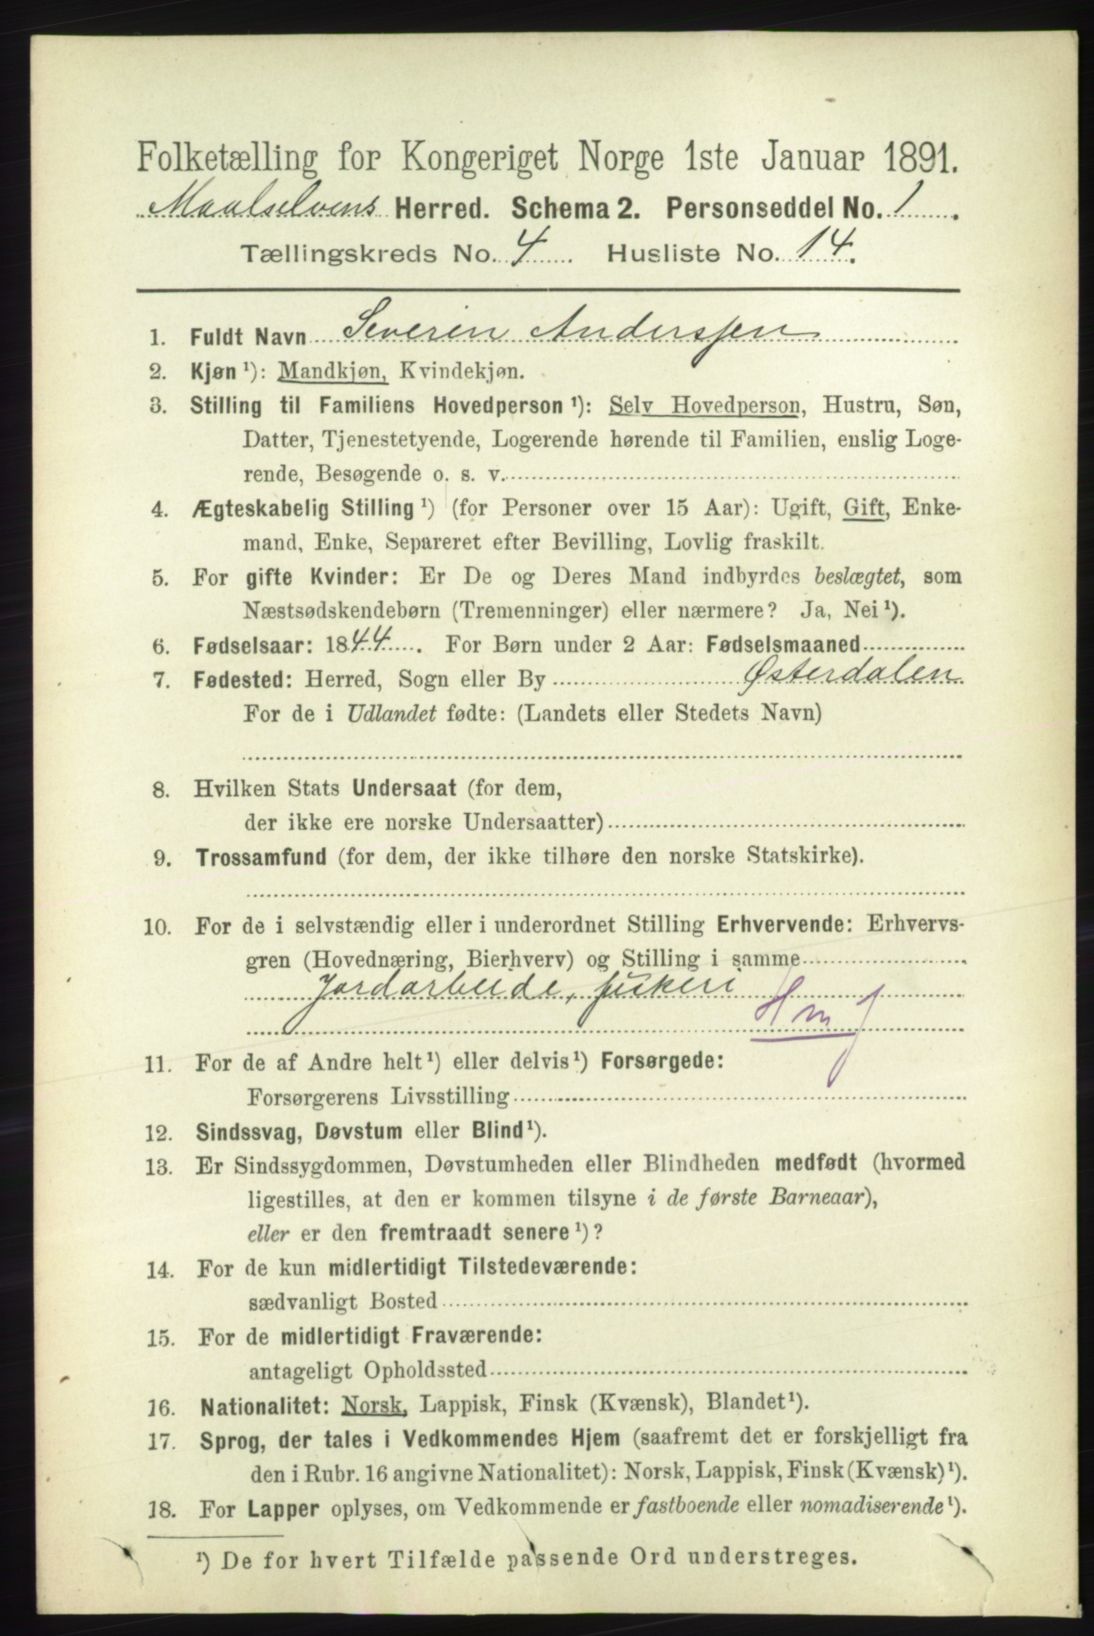 Folketælling for Kongeriget Norge 1ste Januar 1891.
Maalselvens Herred. Schema 2. Personseddel No. 1.
Tællingskreds No. 4. Husliste No. 14.
1. Fuldt Navn Severin Anderssen
2. Kjøn ¹): Mandkjøn, Kvindekjøn.
3. Stilling til Familiens Hovedperson ¹): Selv Hovedperson, Hustru, Søn,
Datter, Tjenestetyende, Logerende hørende til Familien, enslig Loge-
rende, Besøgende o. s. v.
4. Ægteskabelig Stilling ¹) (for Personer over 15 Aar): Ugift, Gift, Enke-
mand, Enke, Separeret efter Bevilling, Lovlig fraskilt.
5. For gifte Kvinder: Er De og Deres Mand indbyrdes beslægtet, som
Næstsødskendebørn (Tremenninger) eller nærmere? Ja, Nei ¹).
6. Fødselsaar: 1844. For Børn under 2 Aar: Fødselsmaaned
7. Fødested: Herred, Sogn eller By Østerdalen
For de i Udlandet fødte: (Landets eller Stedets Navn)
8. Hvilken Stats Undersaat (for dem,
der ikke ere norske Undersaatter)
9. Trossamfund (for dem, der ikke tilhøre den norske Statskirke).
10. For de i selvstændig eller i underordnet Stilling Erhvervende: Erhvervs-
gren (Hovednæring, Bierhverv) og Stilling i samme
Jordarbeide, fiskeri
11. For de af Andre helt ¹) eller delvis ¹) Forsørgede:
Forsørgerens Livsstilling
12. Sindssvag, Døvstum eller Blind ¹).
13. Er Sindssygdommen, Døvstumheden eller Blindheden medfødt (hvormed
ligestilles, at den er kommen tilsyne i de første Barneaar),
eller er den fremtraadt senere ¹)?
14. For de kun midlertidigt Tilstedeværende:
sædvanligt Bosted
15. For de midlertidigt Fraværende:
antageligt Opholdssted
16. Nationalitet: Norsk, Lappisk, Finsk (Kvænsk), Blandet ¹).
17. Sprog, der tales i Vedkommendes Hjem (saafremt det er forskjelligt fra
den i Rubr. 16 angivne Nationalitet): Norsk, Lappisk, Finsk (Kvænsk) ¹).
18. For Lapper oplyses, om Vedkommende er fastboende eller nomadiserende ¹).
¹) De for hvert Tilfælde passende Ord understreges.